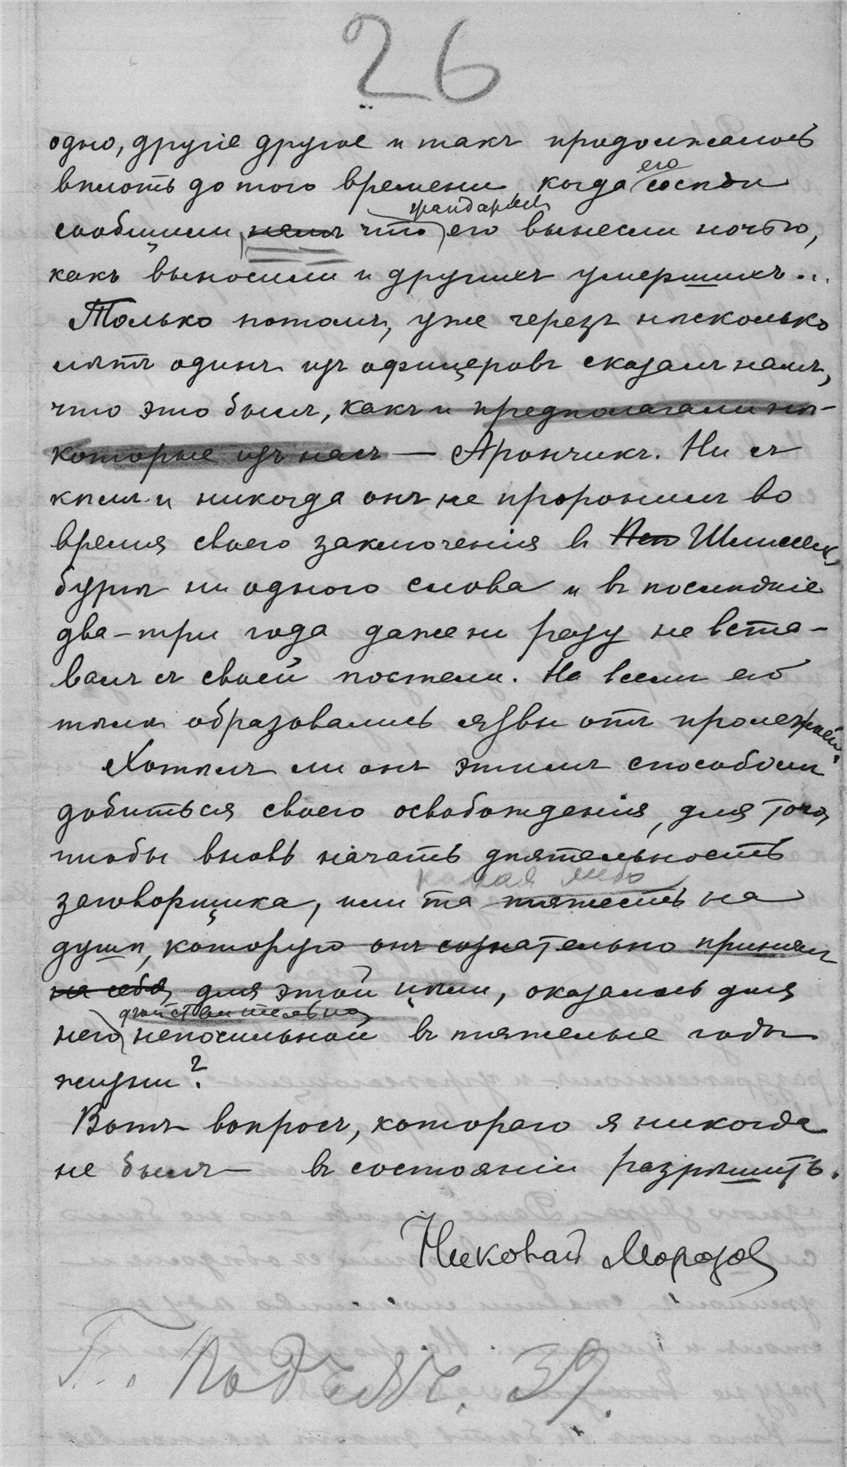 26
одно, другіе другое и такъ продолжалось
вплоть до того времени когда его соседи
сообщили намъ что жандармы его вынесли ночью,
какъ выносили и другихъ умершихъ...
Только потомъ, уже черезъ нѣсколько
лѣтъ одинъ изъ офицеровъ сказалъ намъ,
что это былъ, какъ и предполагали нѣ-
которые изъ насъ — Арончикъ. Ни съ
кѣмъ и никогда онъ не проронилъ во
время своего заключенія в Шлиссель
бургѣ ни одного слова и въ последніе
два-три года даже ни разу не вста-
валъ съ своей постели. На всемъ его
тѣлѣ образовались язвы отъ пролежней.
Хотѣлъ ли онъ этимъ способомъ
добиться своего освобожденія, для того,
чтобы вновь начать дѣятельность
какая либо
заговорщика, или та тяжесть на
душѣ, которую онъ сознательно принялъ
на себя для этой цѣли, оказалась для
дѣйствительно
него непосильной въ тяжелые годы
жизни?
Вотъ вопросъ, котораго я никогда
не былъ — въ состояніи разрѣшить.
Николай Морозов
Г. Подъяч. 39.